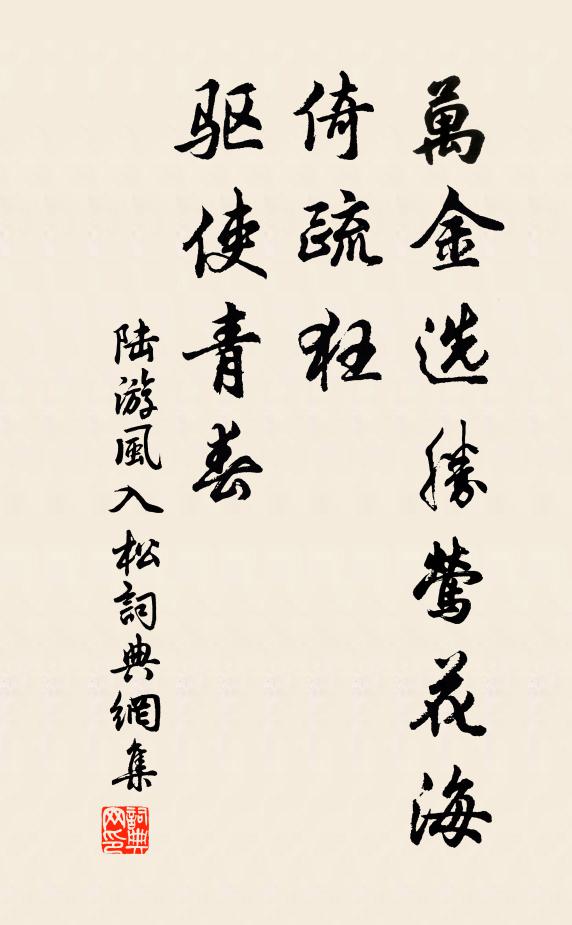 萬金选勝莺花海
倚疏狂
驱使青春
陆游風入松詞典網集
詞典网印